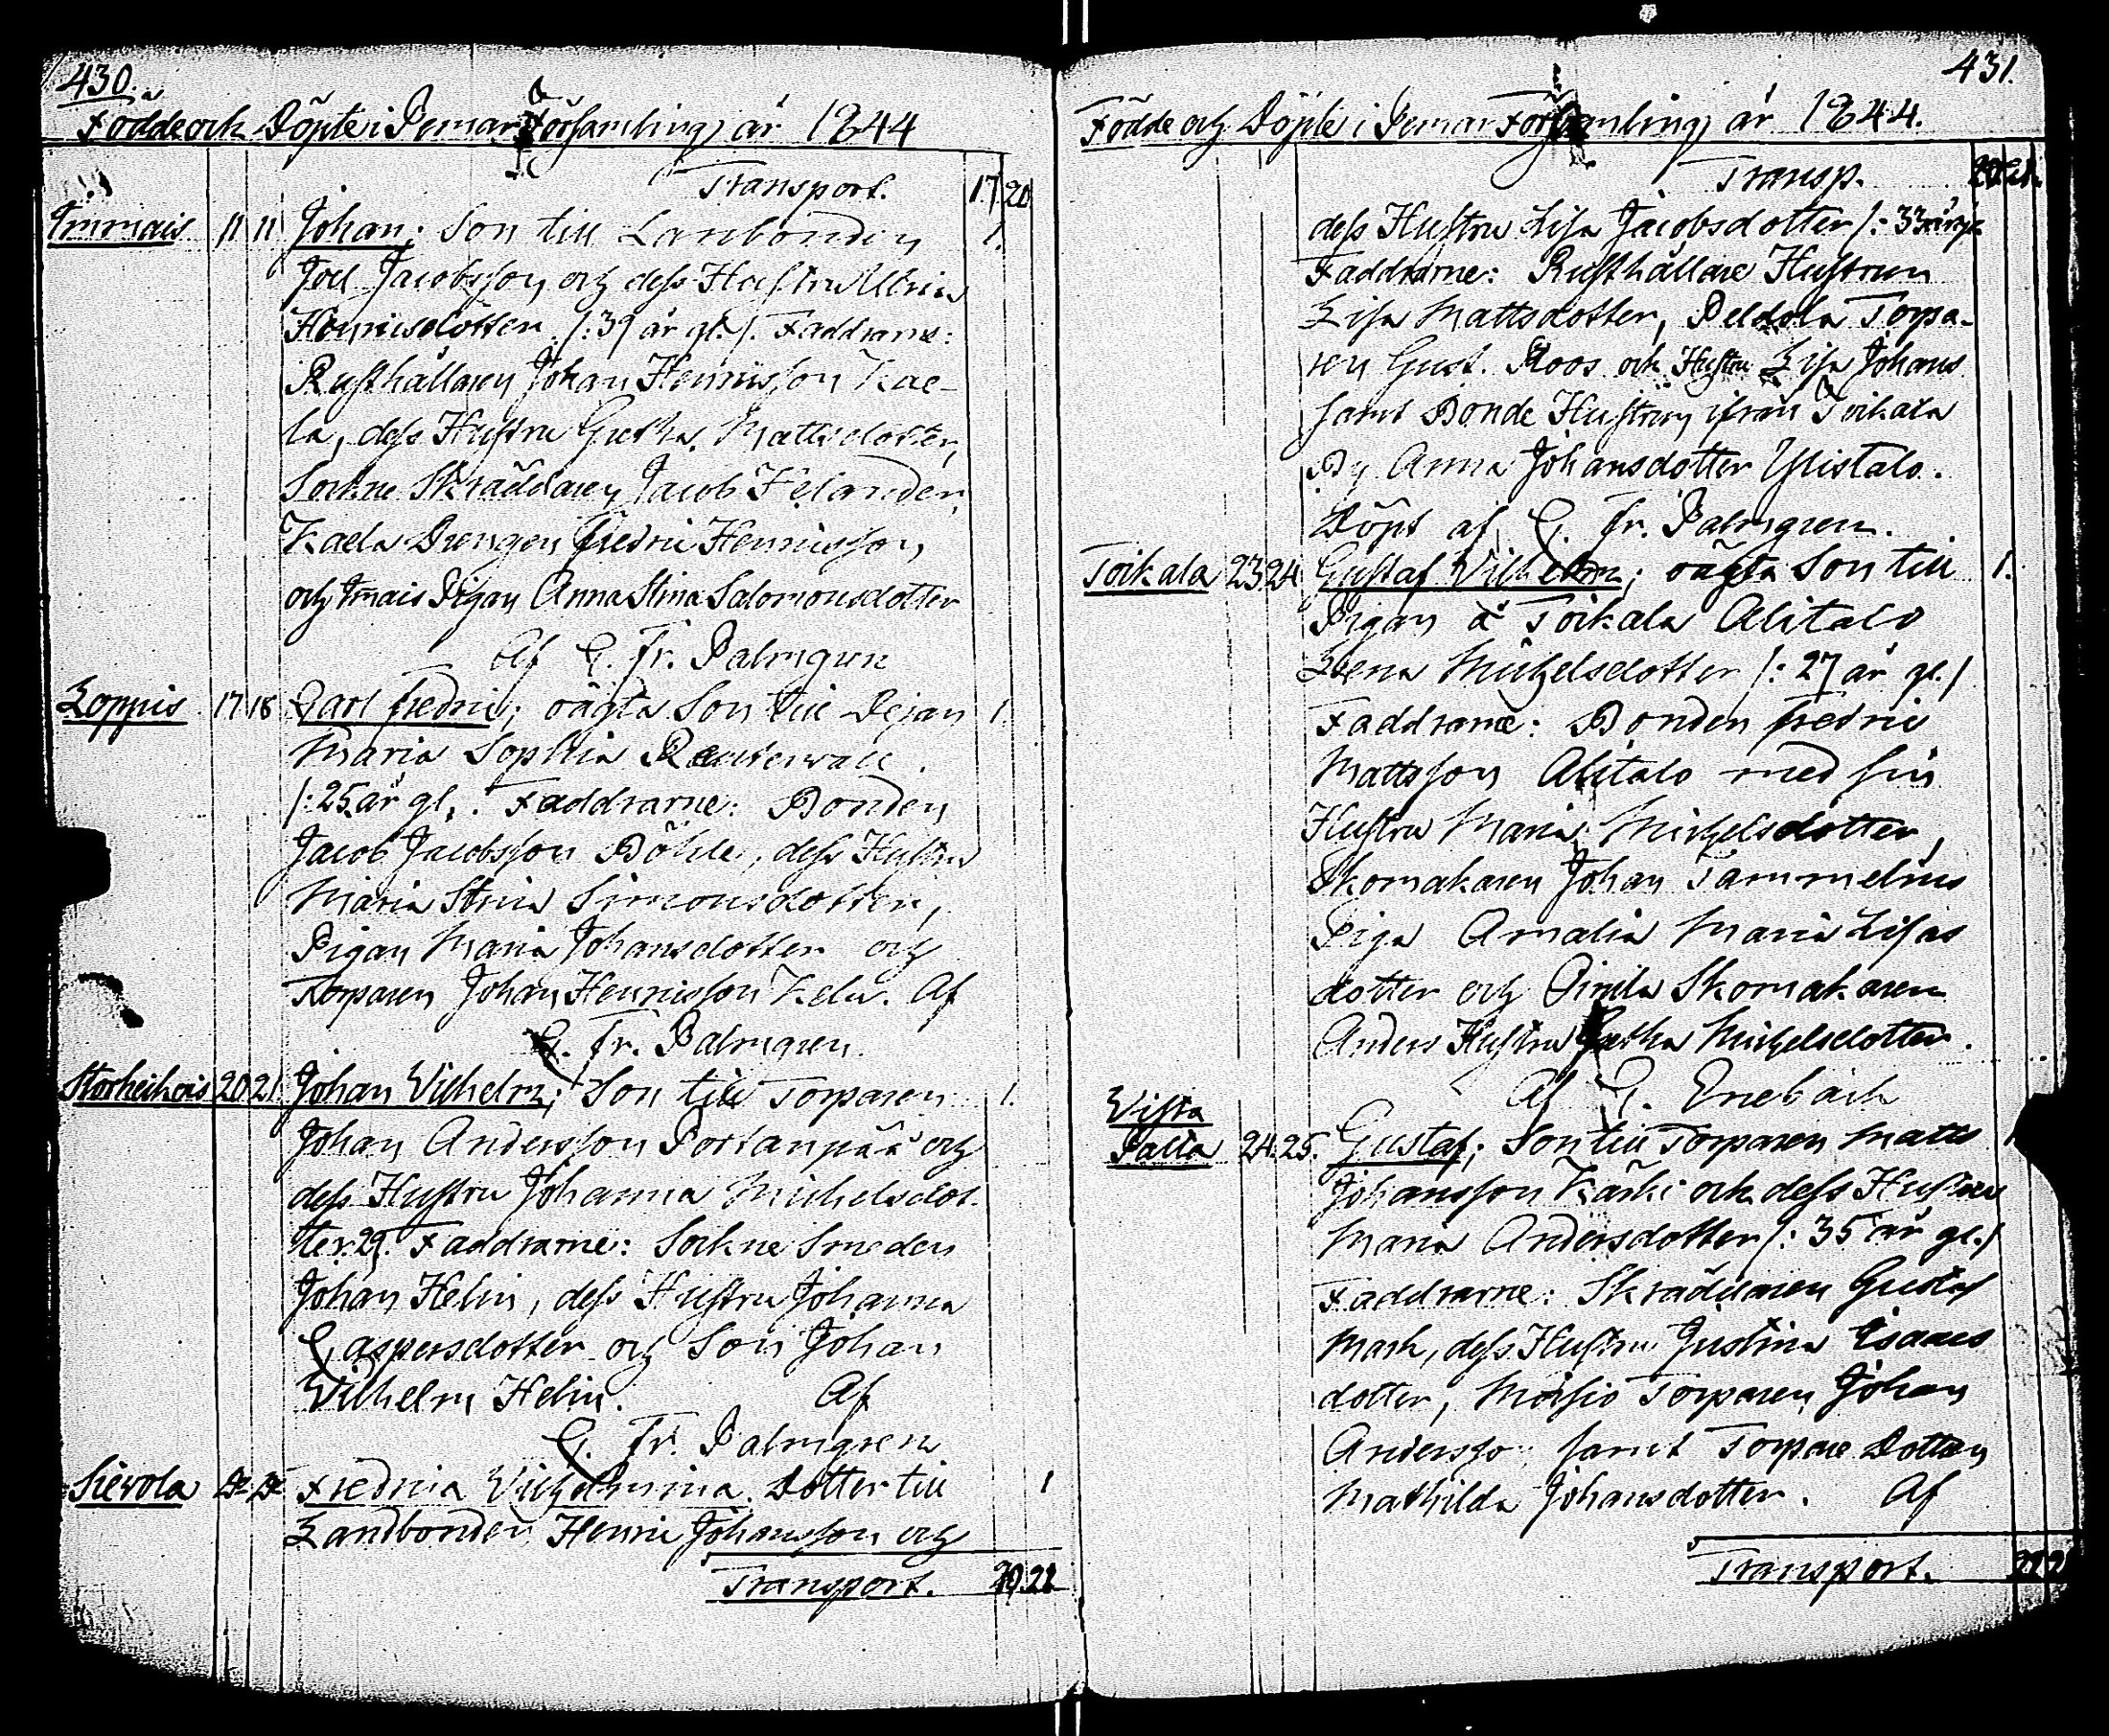 430.
Födde och Döpte i Pemar Församling år 1844
Transport. 17 20
Immais 11 11 Johan; Son till Lanbonden 1.
Joel Jacobsson och dess Hustru Ulrica
Henricsdotter /: 39 år gl. /. Faddrarne:
Rusthållaren Johan Henricsson Kae-
la, dess Hustru Gretha Mattsdotter,
Sockne Skräddaren Jacob Helander,
Kaela Drengen Fredric Henricsson
och Imais Pigan Anna Stina Salomonsdotter
Af C. Fr. Palmgren
Loppis 17 18 Carl Fredric; oägta Son till Pejan 1.
Maria Sophia Reuterwall
/: 25 år gl. . Faddrarne: Bonden
Jacob Jacobsson Böhle, dess Hustru
Maria Stina Simonsdotter,
Pigan Maria Johansdotter och
Torparen Johan Henricsson Af
C. Fr. Palmgren.
Storheikois 20 21. Johan Wilhelm; Son till Torparen 1.
Johan Andersson Portanpää och
dess Hustru Johanna Michelsdot-
ter 29. Faddrarne: Sockne Smeden
Johan Helin, dess Hustru Johanna
Caspersdotter och Son Johan
Wilhelm Helin. Af
C. Fr. Palmgren
Sievola Fredrica Wilhelmina. Dotter till 1
Landbonden Henric Johansson och
Transport. 20. 21
431.
Födde och Döpte i Pemar Församling år 1844.
Transp. 20 21.
dess Hustru Lisa Jacobsdotter /: 33 årig
Faddrarne: Rusthållare Hustrun
Lisa Mattsdotter, Peldola Torpa-
ren Gust. Roos och Hustru Lisa Johans
samt Bonde Hustrun ifrån Toikala
By Anna Johansdotter Ylistalo.
Döpt af C. Fr. Palmgren.
Toikala 23 24 Gustaf Vilhelm; oägta Son till 1.
Pigan å Toikala Alitalo
Lena Michelsdotter /: 27 år gl. /
Faddrarne: Bonden Fredric
Mattsson Alitalo med sin
Hustru Maria Michelsdotter,
Skomakaren Johan Tammelius
Piga Amalia Maria Lisas
dotter och Skomakaren
Anders Hustru Gretha Michelsdotter.
Af C. Enebäck
Wista
Palta 24. 25. Gustaf; Son till Torparen Matts
Johansson Kärki och dess Hustru
Maria Andersdotter /: 35 år gl. /
Faddrarne: Skräddaren Gustaf
Mark, dess Hustru Justina Isaacs
dotter, Moisio Torparen Johan
Andersso samt Torpare Dottern
Mathilda Johansdotter. Af
Transport.